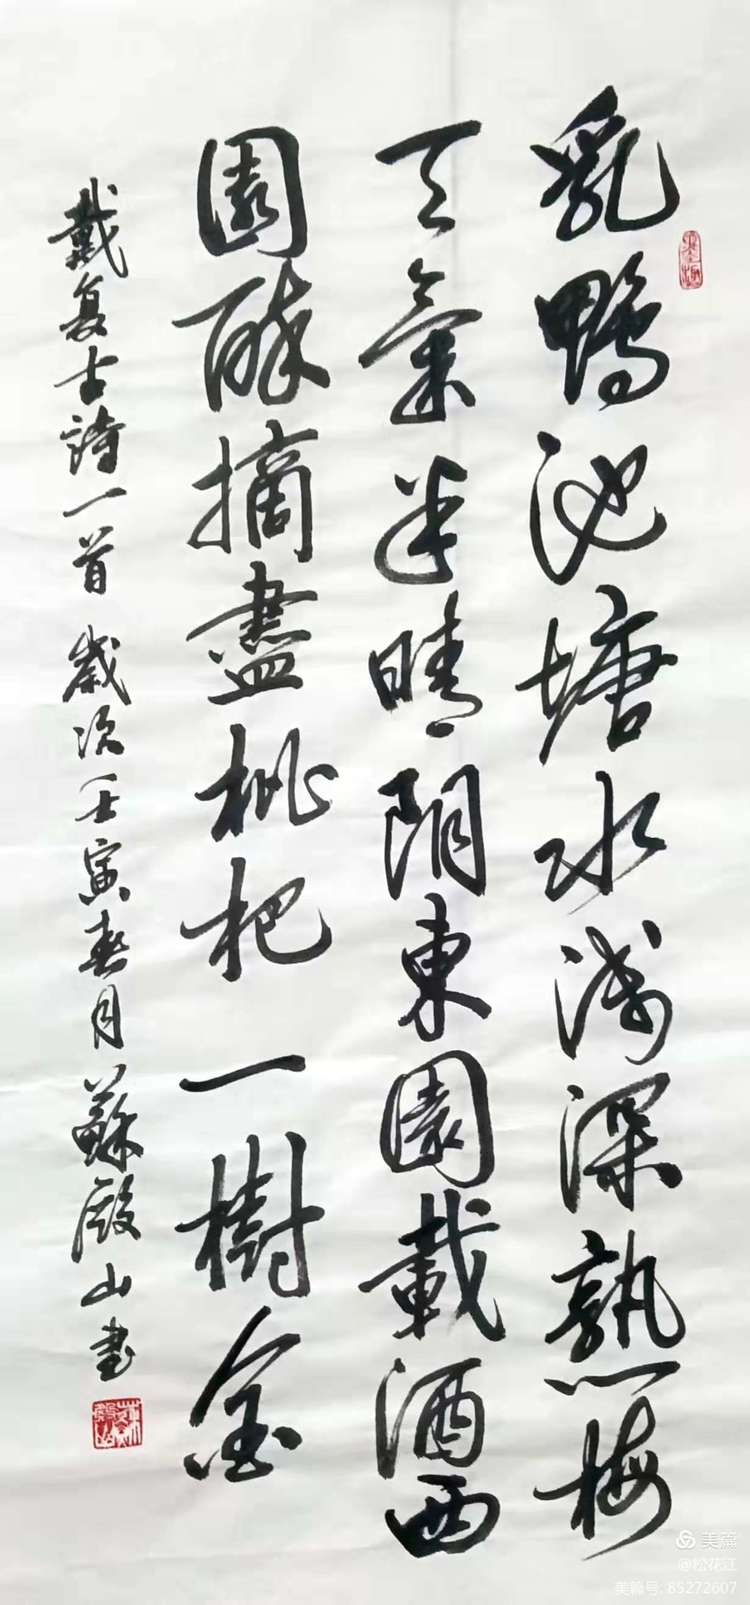 乳鴨池塘水浅深熟梅
天氣半晴阴東園載酒西
園醉摘盡枇杷一樹金
戴复古詩一首 歲次壬寅春月蘇殿山書
蘇殿山
美篇
@松花江
美篇号: 85272607